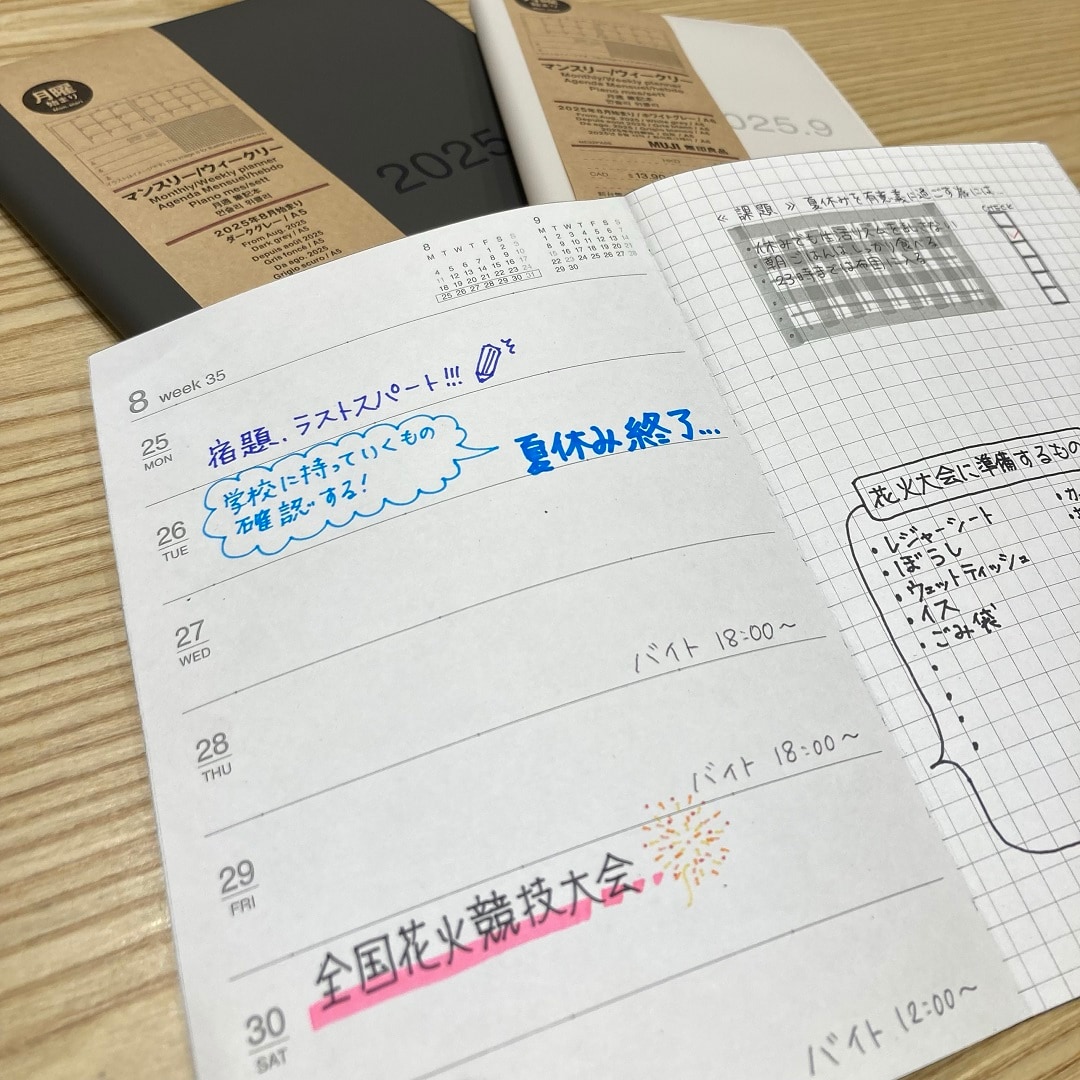 月曜
始まり
マンスリー/ウィークリー
Monthly/Weekly planner
Agenda Mensuel/hebdo
Plano mes/sett
2025年8月始まり
ダークグレー / A5
From Aug. 2025
Dark grey / A5
Depuis août 2025
Gris foncé / A5
Da ago. 2025
Grigio scuro / A5
2025
マンスリー/ウィークリー
Monthly/Weekly planner
Agenda Mensuel/hebdo
Plano mes/sett
MUJI 無印良品
2025.9
8
M T W T F S S
1 2 3
4 5 6 7 8 9 10
11 12 13 14 15 16 17
18 19 20 21 22 23 24
25 26 27 28 29 30 31
9
M T W T F S S
1 2 3 4 5 6 7
8 9 10 11 12 13 14
15 16 17 18 19 20 21
22 23 24 25 26 27 28
29 30
8 week 35
25
MON
宿題、ラストスパート!!!
学校に持っていくもの
確認する!
夏休み終了...
26
TUE
27
WED
バイト 18:00~
28
THU
バイト 18:00~
29
FRI
全国花火競技大会
30
SAT
バイト 12:00~
≪課題≫ 夏休みを有意義に過ごす為には…
check
・休みでも生活リズムを乱さない
・朝ごはんはしっかり食べる
・23時までは布団に入る
花火大会に準備するもの
・レジャーシート
・ぼうし
・ウェットティッシュ
・イス
・ごみ袋